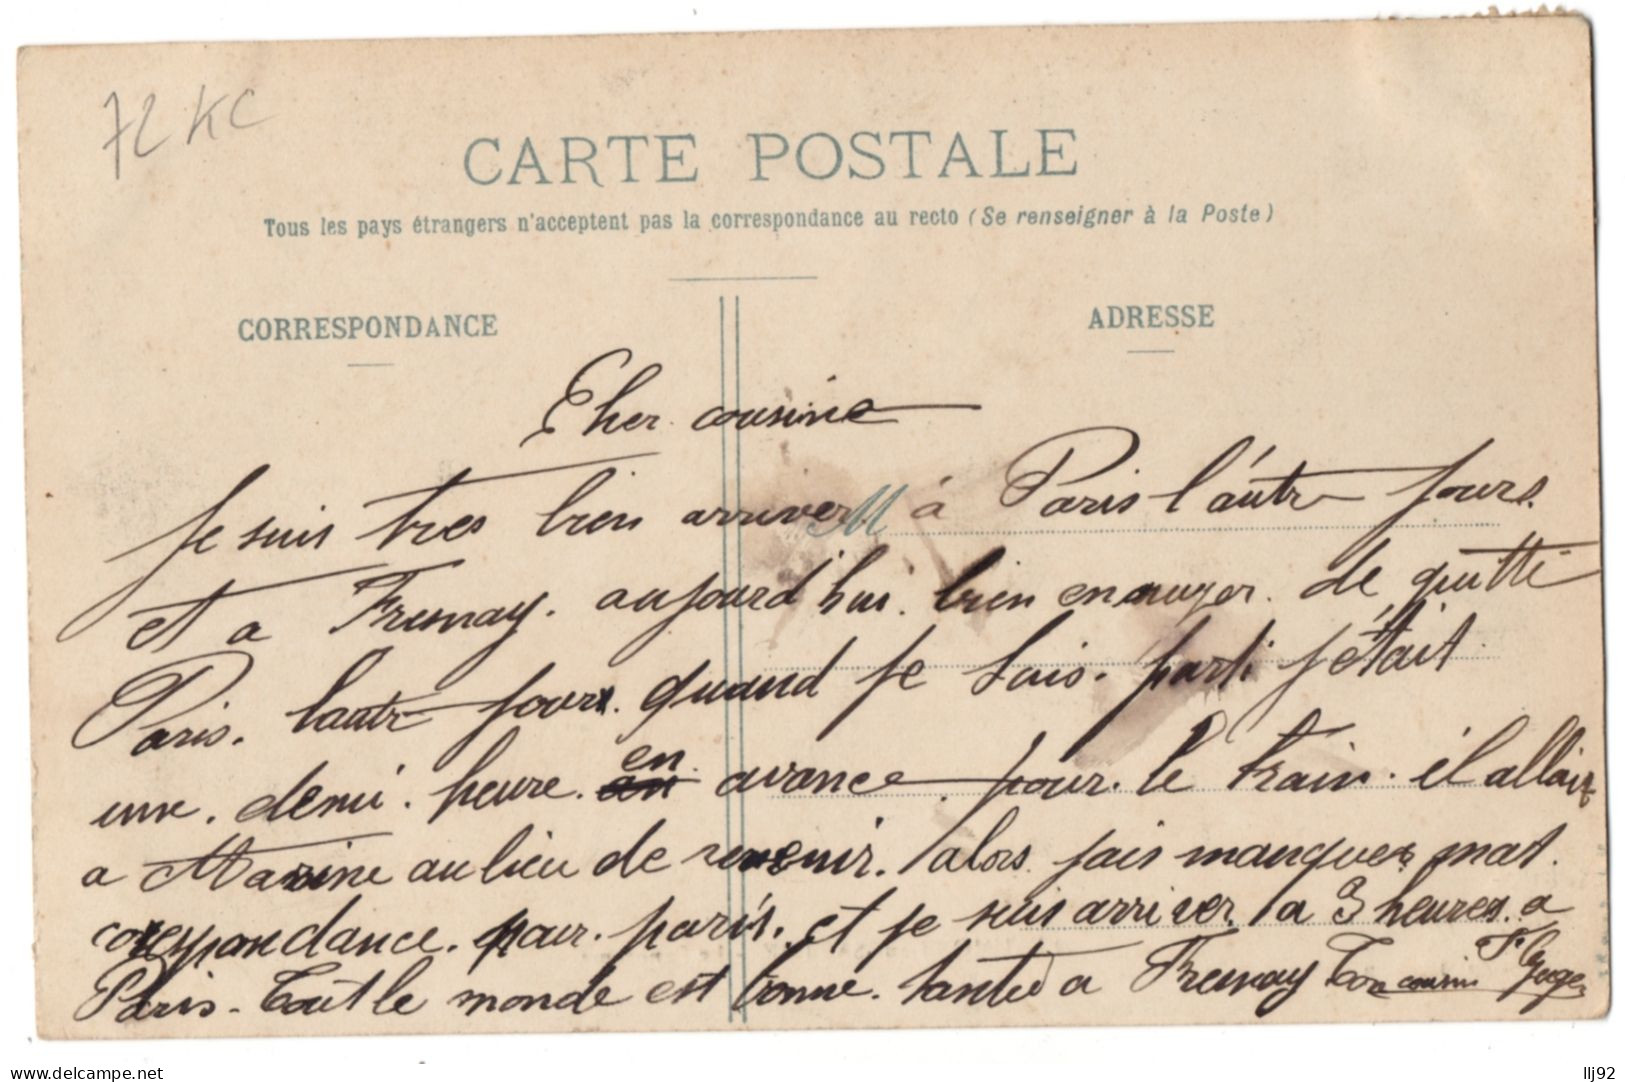 72 KC
CARTE POSTALE
Tous les pays étrangers n'acceptent pas la correspondance au recto (Se renseigner à la Poste)
CORRESPONDANCE
ADRESSE
Cher cousine
Je suis tres bien arriver M à Paris l'autr jours.
et a Fresnay. aujourd'hui. bien ennuyer. de quitté
Paris. lautr jour. quand je suis. parti j'était
une. demi. heure. en avance. pour. le train. il allait
a Mazine au lieu de revenir. alors jais manquer mat.
correspondance. pour. paris. et je suis arriver a 3 heures. a
Paris. Tout le monde est bonne. santed a Fresnay Ton cousin F
delcampe.net
llj92